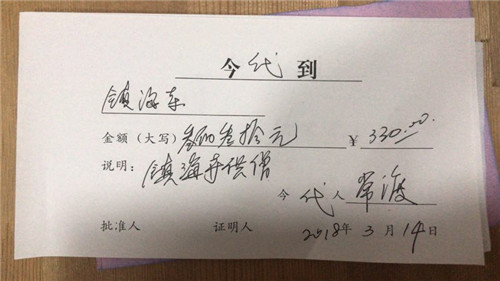 今代到
镇海寺
金额（大写）叁佰叁拾元 ￥ 330.00
说明：镇海寺供僧
今代人 常海
批准人 证明人 2018年3月14日